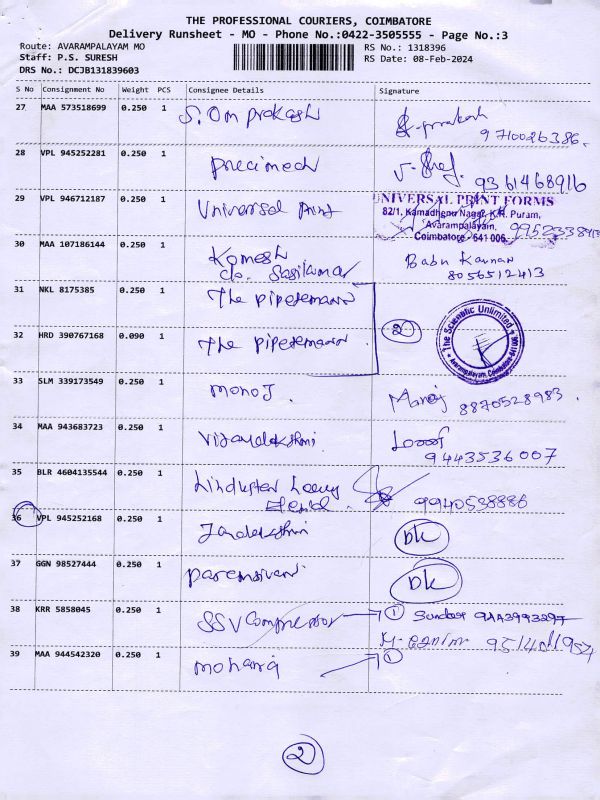 THE PROFESSIONAL COURIERS, COIMBATORE
Delivery Runsheet - MO - Phone No.:0422-3505555 - Page No.:3
Route: AVARAMPALAYAM MO
RS No.: 1318396
Staff: P.S. SURESH
RS Date: 08-Feb-2024
DRS No.: DCJB131839603
S No Consignment No Weight PCS Consignee Details Signature
27 MAA 573518699 0.250 1 S. Om prakash
9710026386.
28 VPL 945252281 0.250 1 precimech
9361468916
29 VPL 946712187 0.250 1 Universal print
UNIVERSAL PRINT FORMS
82/1, Kamadhenu Nagar, K.R. Puram,
Avarampalayam,
Coimbatore - 641 006.
30 MAA 107186144 0.250 1 Komesh
c/o. Sasikumar
Babu Kannan
8056512413
31 NKL 8175385 0.250 1 The
32 HRD 390767168 0.090 1 The
29
The Scientific Unlimited
Avarampalayam, Coimbatore-641 006
33 SLM 339173549 0.250 1 manoJ.
Manoj 8870528983.
34 MAA 943683723 0.250 1 Vijayalakshmi
9443536007
35 BLR 4604135544 0.250 1 Hindustan
9940538886
36 VPL 945252168 0.250 1
DK
37 GGN 98527444 0.250 1
DK
38 KRR 5858045 0.250 1 SSV Compressor
1 Sundar
39 MAA 944542320 0.250 1
1
2